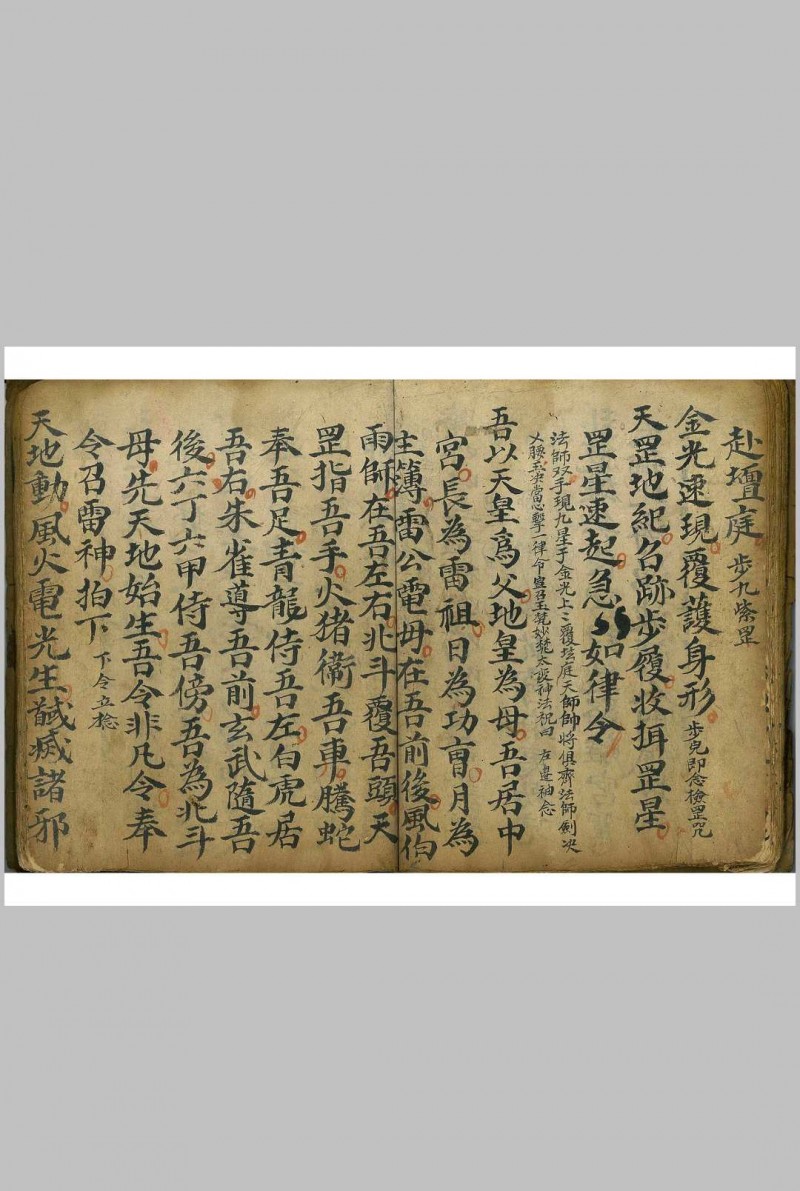 赴壇庭 步九紫罡
金光速現覆護身形 步完即念檢罡咒
天罡地紀名跡步履收揖罡星
罡星速起急〻如律令
法師双手現九星于金光上三覆壇庭天師師將俱齊法師劍决
當心擊一律令 太霞神法祝曰 左邊袖念
吾以天皇爲父地皇為母吾居中
宮長為雷祖日為功曹月為
主簿雷公電母在吾前後風伯
雨師在吾左右北斗覆吾頭天
罡指吾手火猪衛吾車騰蛇
奉吾足青龍侍吾左白虎居
吾右朱雀導吾前玄武隨吾
後六丁六甲侍吾傍吾為北斗
母先天地始生吾令非凡令奉
令召雷神拍下 下令立捻
天地動風火電光生馘滅諸邪